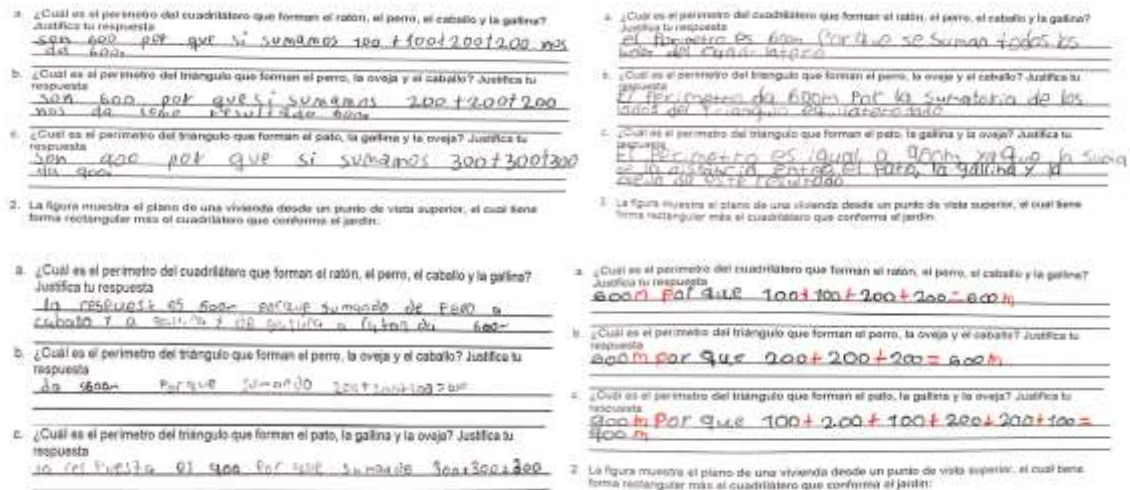 a. ¿Cuál es el perímetro del cuadrilátero que forman el ratón, el perro, el caballo y la gallina?
Justifica tu respuesta
son 600 por que si sumamos 100+100+200+200 nos
da 600
b. ¿Cuál es el perímetro del triángulo que forman el perro, la oveja y el caballo? Justifica tu
respuesta
son 600 por que si sumamos 200+200+200
nos da como resultado 600
c. ¿Cuál es el perímetro del triángulo que forman el pato, la gallina y la oveja? Justifica tu
respuesta
son 900 por que si sumamos 300+300+300
da 900
2. La figura muestra el plano de una vivienda desde un punto de vista superior, el cual tiene
forma rectangular más el cuadrilátero que conforma el jardín:
a. ¿Cuál es el perímetro del cuadrilátero que forman el ratón, el perro, el caballo y la gallina?
Justifica tu respuesta
el Perimetro es 600m Porque se suman todos los
lados del cuadrilatero
b. ¿Cuál es el perímetro del triángulo que forman el perro, la oveja y el caballo? Justifica tu
respuesta
El Perimetro da 600m Por la sumatoria de los
lados del Triangulo
c. ¿Cuál es el perímetro del triángulo que forman el pato, la gallina y la oveja? Justifica tu
respuesta
El Perimetro es igual a 900m ya que la suma
de la distancia entre el Pato, la gallina y la
oveja da este resultado
2. La figura muestra el plano de una vivienda desde un punto de vista superior, el cual tiene
forma rectangular más el cuadrilátero que conforma el jardín:
a. ¿Cuál es el perímetro del cuadrilátero que forman el ratón, el perro, el caballo y la gallina?
Justifica tu respuesta
la respuest es 600m porque sumando de Perro a
caballo y a gallina y de gallina a raton da 600m
b. ¿Cuál es el perímetro del triángulo que forman el perro, la oveja y el caballo? Justifica tu
respuesta
da Porque sumando
c. ¿Cuál es el perímetro del triángulo que forman el pato, la gallina y la oveja? Justifica tu
respuesta
la respuesta es 900 Por que sumando 300+300+300
a. ¿Cuál es el perímetro del cuadrilátero que forman el ratón, el perro, el caballo y la gallina?
Justifica tu respuesta
600m Por que 100+100+200+200=600m
b. ¿Cuál es el perímetro del triángulo que forman el perro, la oveja y el caballo? Justifica tu
respuesta
600m por que 200+200+200=600m
c. ¿Cuál es el perímetro del triángulo que forman el pato, la gallina y la oveja? Justifica tu
respuesta
900m Por que 100+200+100+200+200+100=
900m
2. La figura muestra el plano de una vivienda desde un punto de vista superior, el cual tiene
forma rectangular más el cuadrilátero que conforma el jardín: